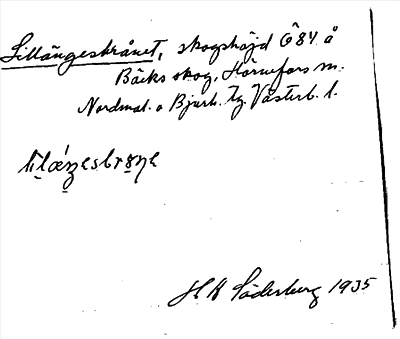 Lillängesbrånet, skogshöjd Ö84 å
Bäcks skog, Hörnefors m.
Nordmal. o Bjurh. tg. Västerb. l.
H H Söderberg 1935